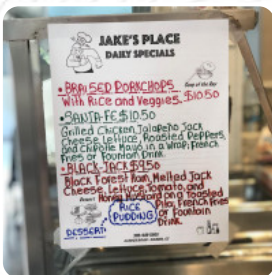 JAKE'S PLACE
DAILY SPECIALS
Soup of the Day
• BRAISED PORKCHOPS
With Rice and Veggies. $10.50
• SANTA-FE $10.50
Grilled Chicken, Jalapeño Jack
Cheese, Lettuce, Roasted Peppers,
and Chipotle Mayo in a Wrap; French
Fries or Fountain Drink.
• BLACK-JACK $9.50
Black Forest Ham, Melted Jack
Cheese, Lettuce, Tomato, and
Honey Mustard on a Toasted
Pita; French Fries
or Fountain
Drink.
RICE
PUDDING
DESSERT